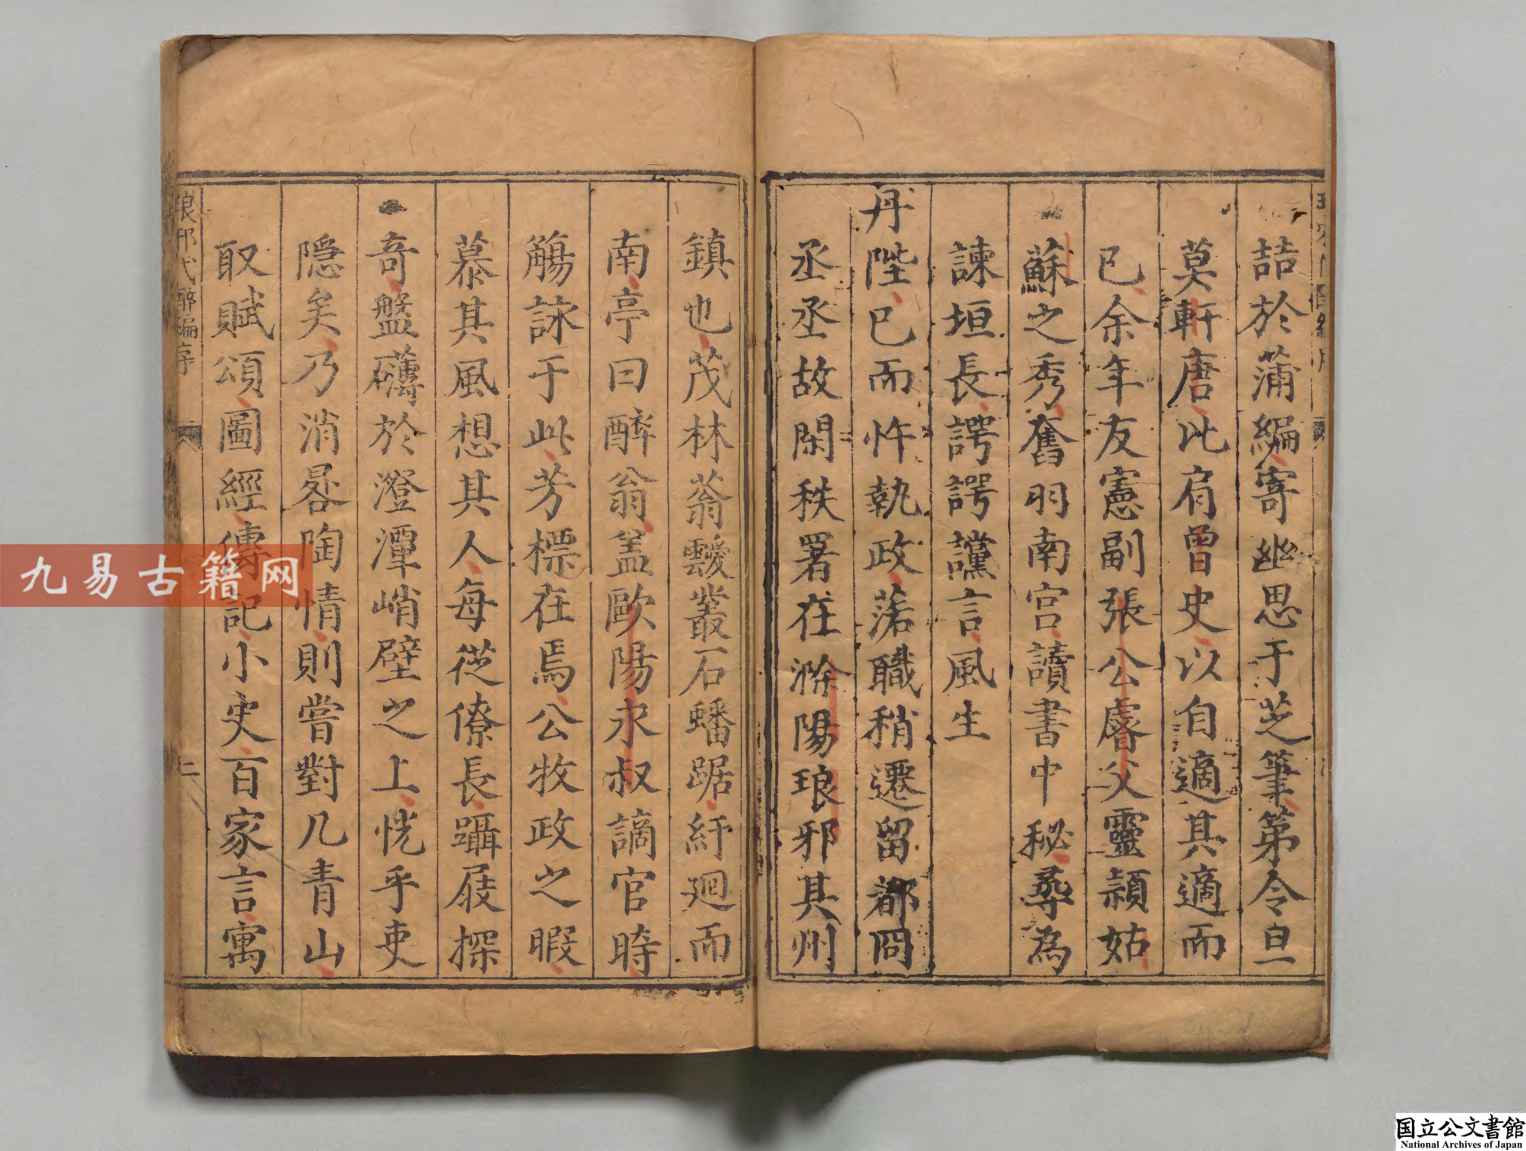 喆於蒲編寄幽思于芝筆第令旦
莫軒唐比肩曾史以自適其適而
已余年友憲副張公睿父靈頴姑
蘇之秀奮羽南宫讀書中秘尋為
諫垣長諤諤讜言風生
丹陛已而忤執政落職稍遷留都冏
丞丞故閑秩署在滁陽琅邪其州
鎮也茂林蓊靉叢石蟠踞紆廻而
南亭曰醉翁盖歐陽永叔謫官時
觴詠于此芳標在焉公牧政之暇
慕其風想其人每從僚長躡屐探
奇盤礴於澄潭峭壁之上恍乎吏
隠矣乃消晷陶情則嘗對几青山
取賦頌圖經傳記小史百家言寓
琅邪代醉編序
二
九易古籍网
国立公文書館
National Archives of Japan